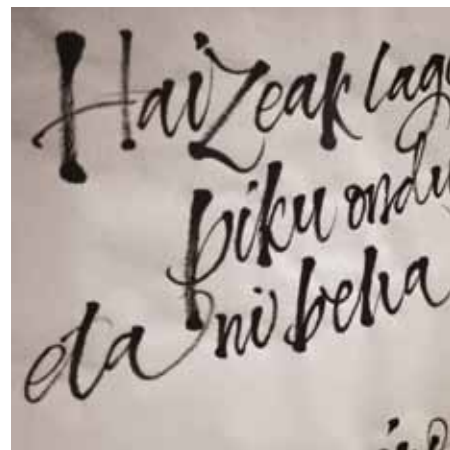 Haizeak lag
piku ondu
eta ni beha